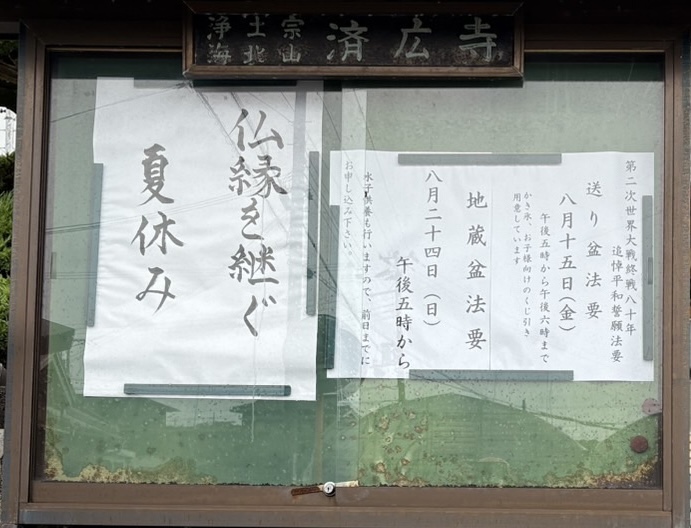 浄土宗
海北山
済広寺
第二次世界大戦終戦八十年
追悼平和誓願法要
送り盆法要
八月十五日(金)
午後五時から午後六時まで
かき氷、お子様向けのくじ引き
用意しています
地蔵盆法要
八月二十四日(日)
午後五時から
水子供養も行いますので、前日までに
お申し込み下さい。
仏縁を継ぐ
夏休み